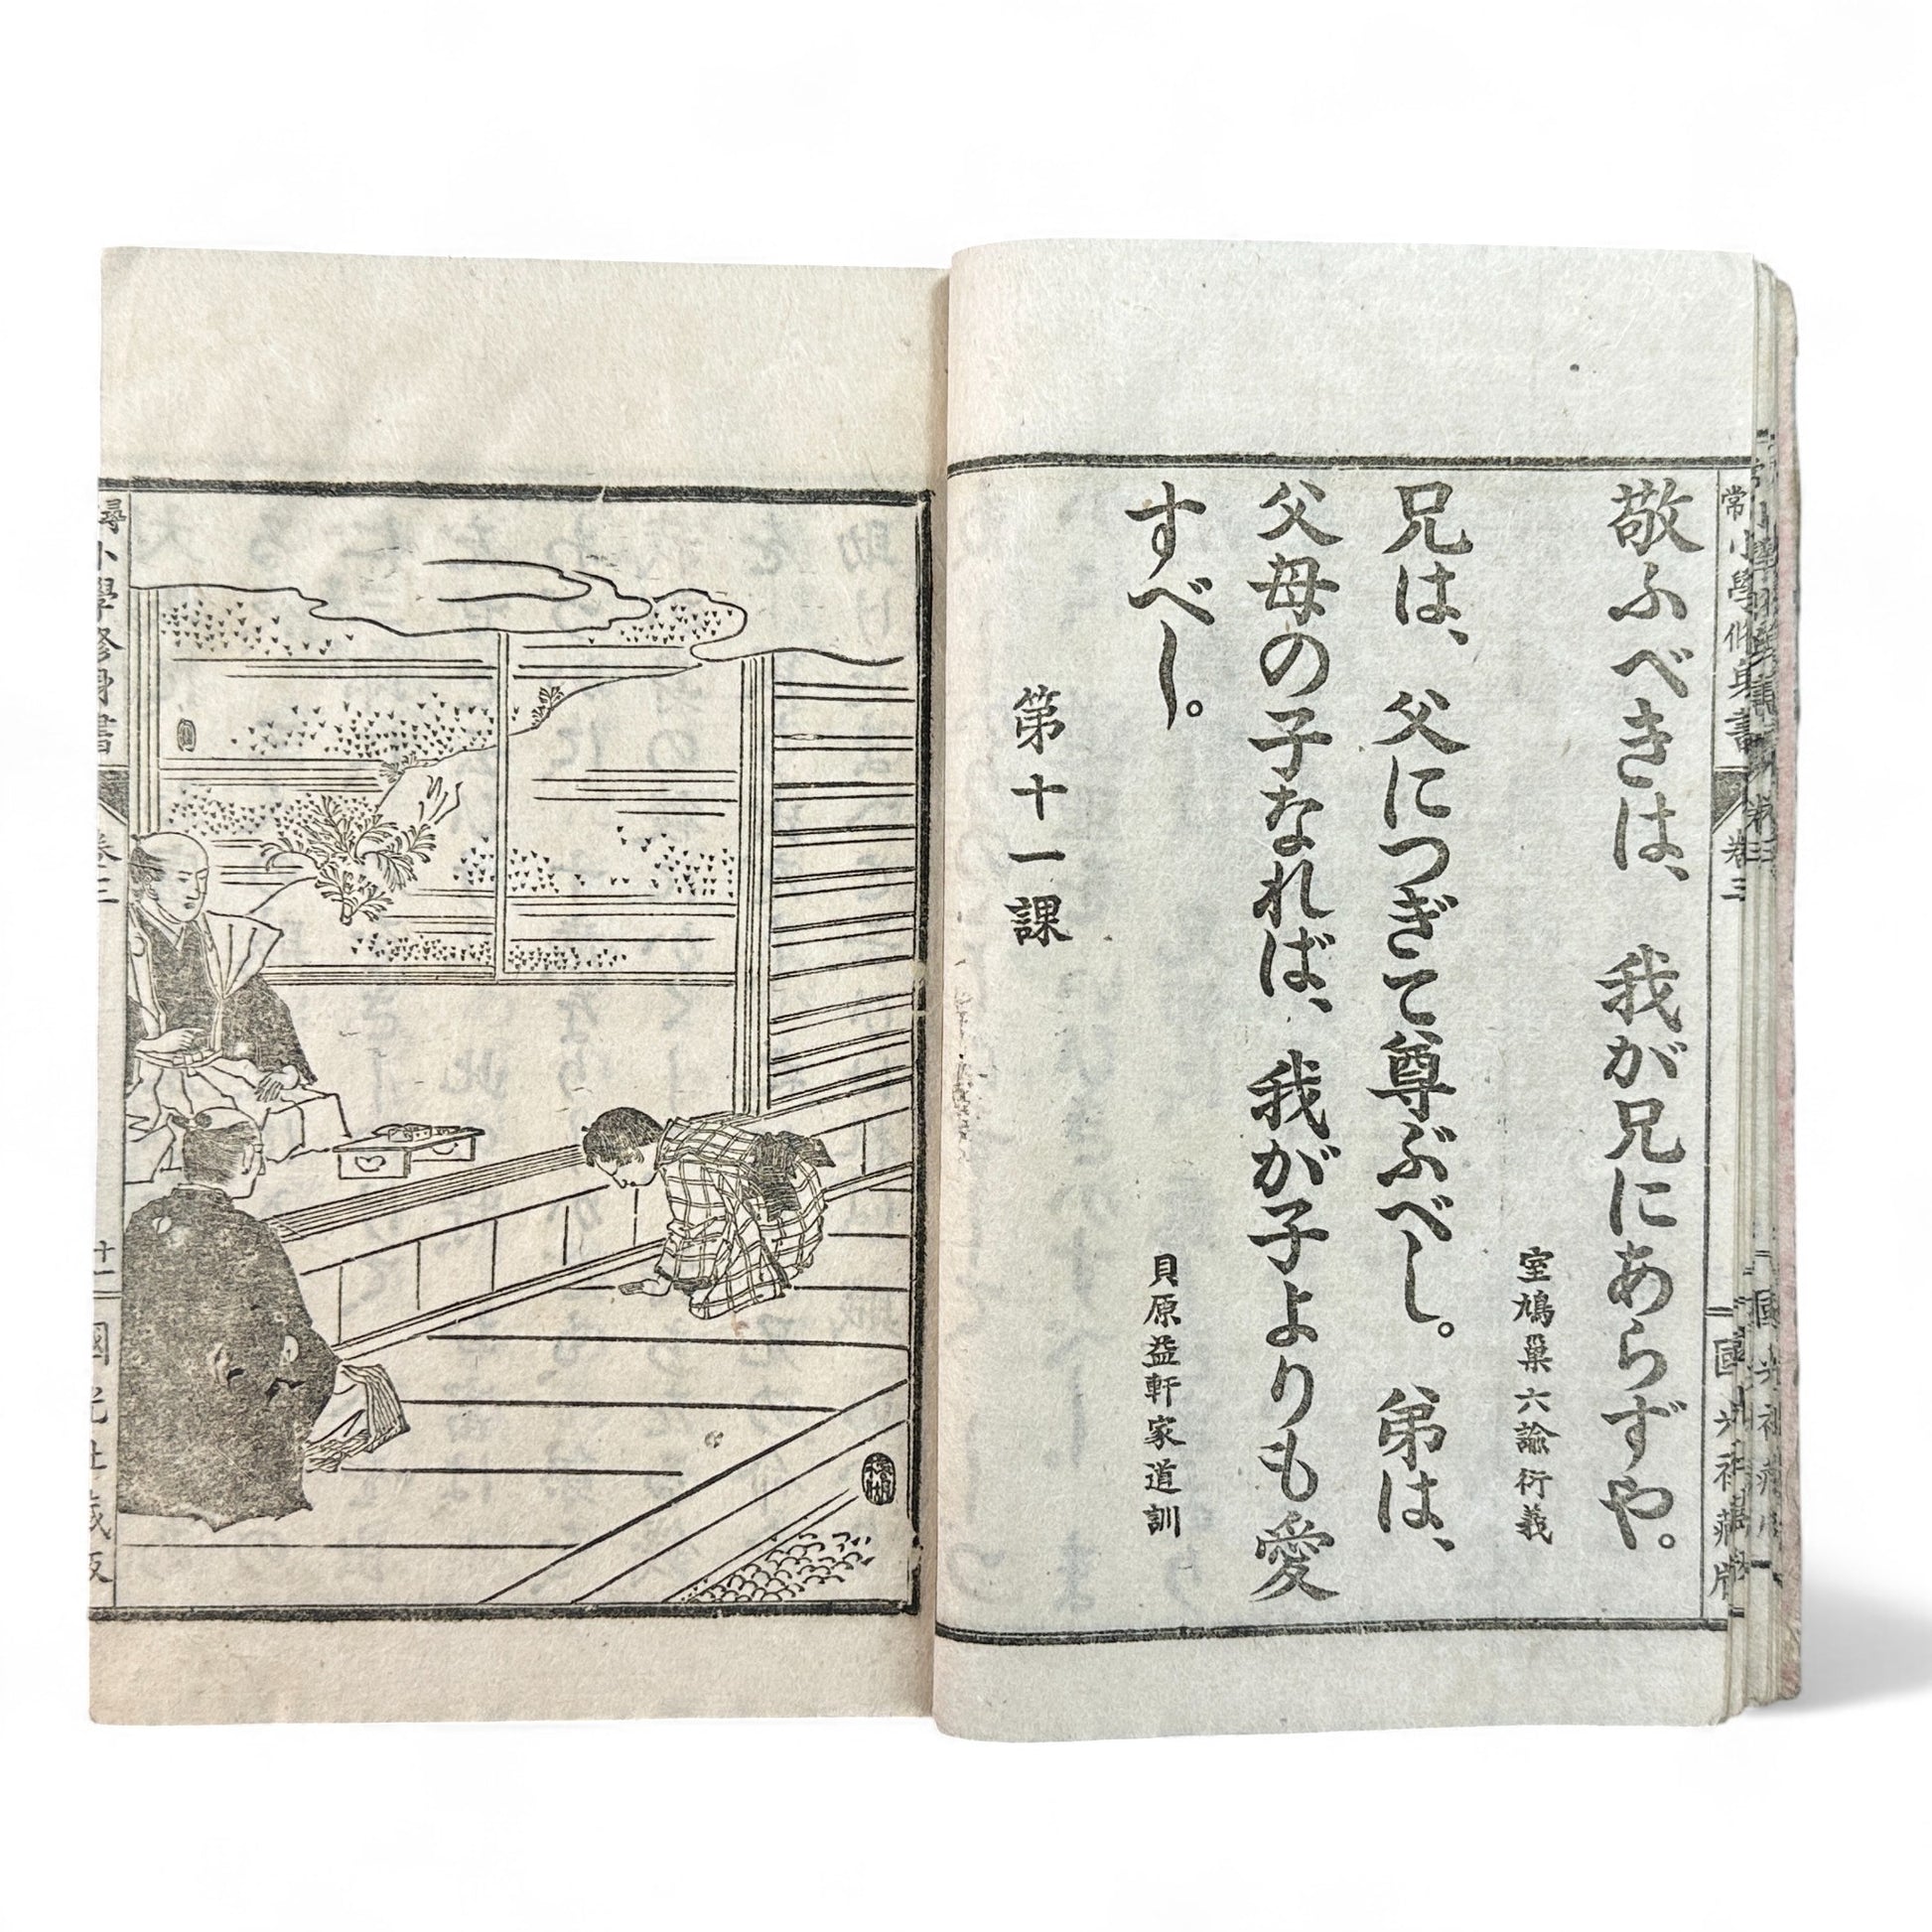 敬ふべきは、我が兄にあらずや。
室鳩巢六諭衍義
兄は、父につぎて尊ぶべし。弟は、
父母の子なれば、我が子よりも愛
すべし。
貝原益軒家道訓
第十一課
尋常小學修身書 卷三 廿二 國光社藏版